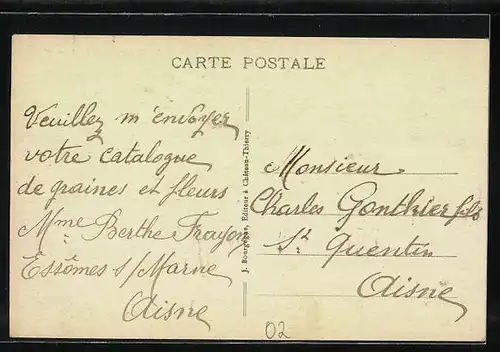 CARTE POSTALE
Veuillez m'envoyer
votre catalogue
de graines et fleurs
Mme Berthe Frayon
Essômes s/Marne
Aisne
J. Bourgogne, Éditeur à Château-Thierry
Monsieur
Charles Gonthier fils
St Quentin
Aisne
02